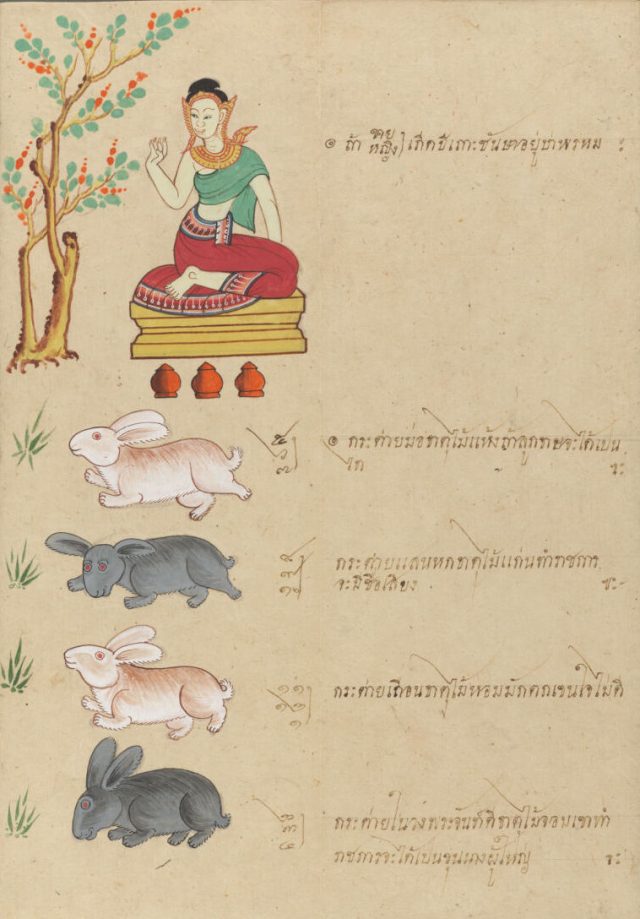 ๏ ถ้า ชาย หญิง เกิดปีเถาะชันษาอยู่ชาพรหม
๏ กระต่ายม่อธาตุไม้แห้งถ้าลูกทาษจะได้เปน
ไท ฯะ
กระต่ายแสนหกธาตุไม้แก่นทำราชการ
จะมีชื่อเสียง ฯะ
กระต่ายเถื่อนธาตุไม้หอมมักตกเขนใจไม่ดี
กระต่ายในวงพระจันท์ดีธาตุไม้จอมเขาทำ
ราชการจะได้เปนขุนนางผู้ใหญ่ ฯะ